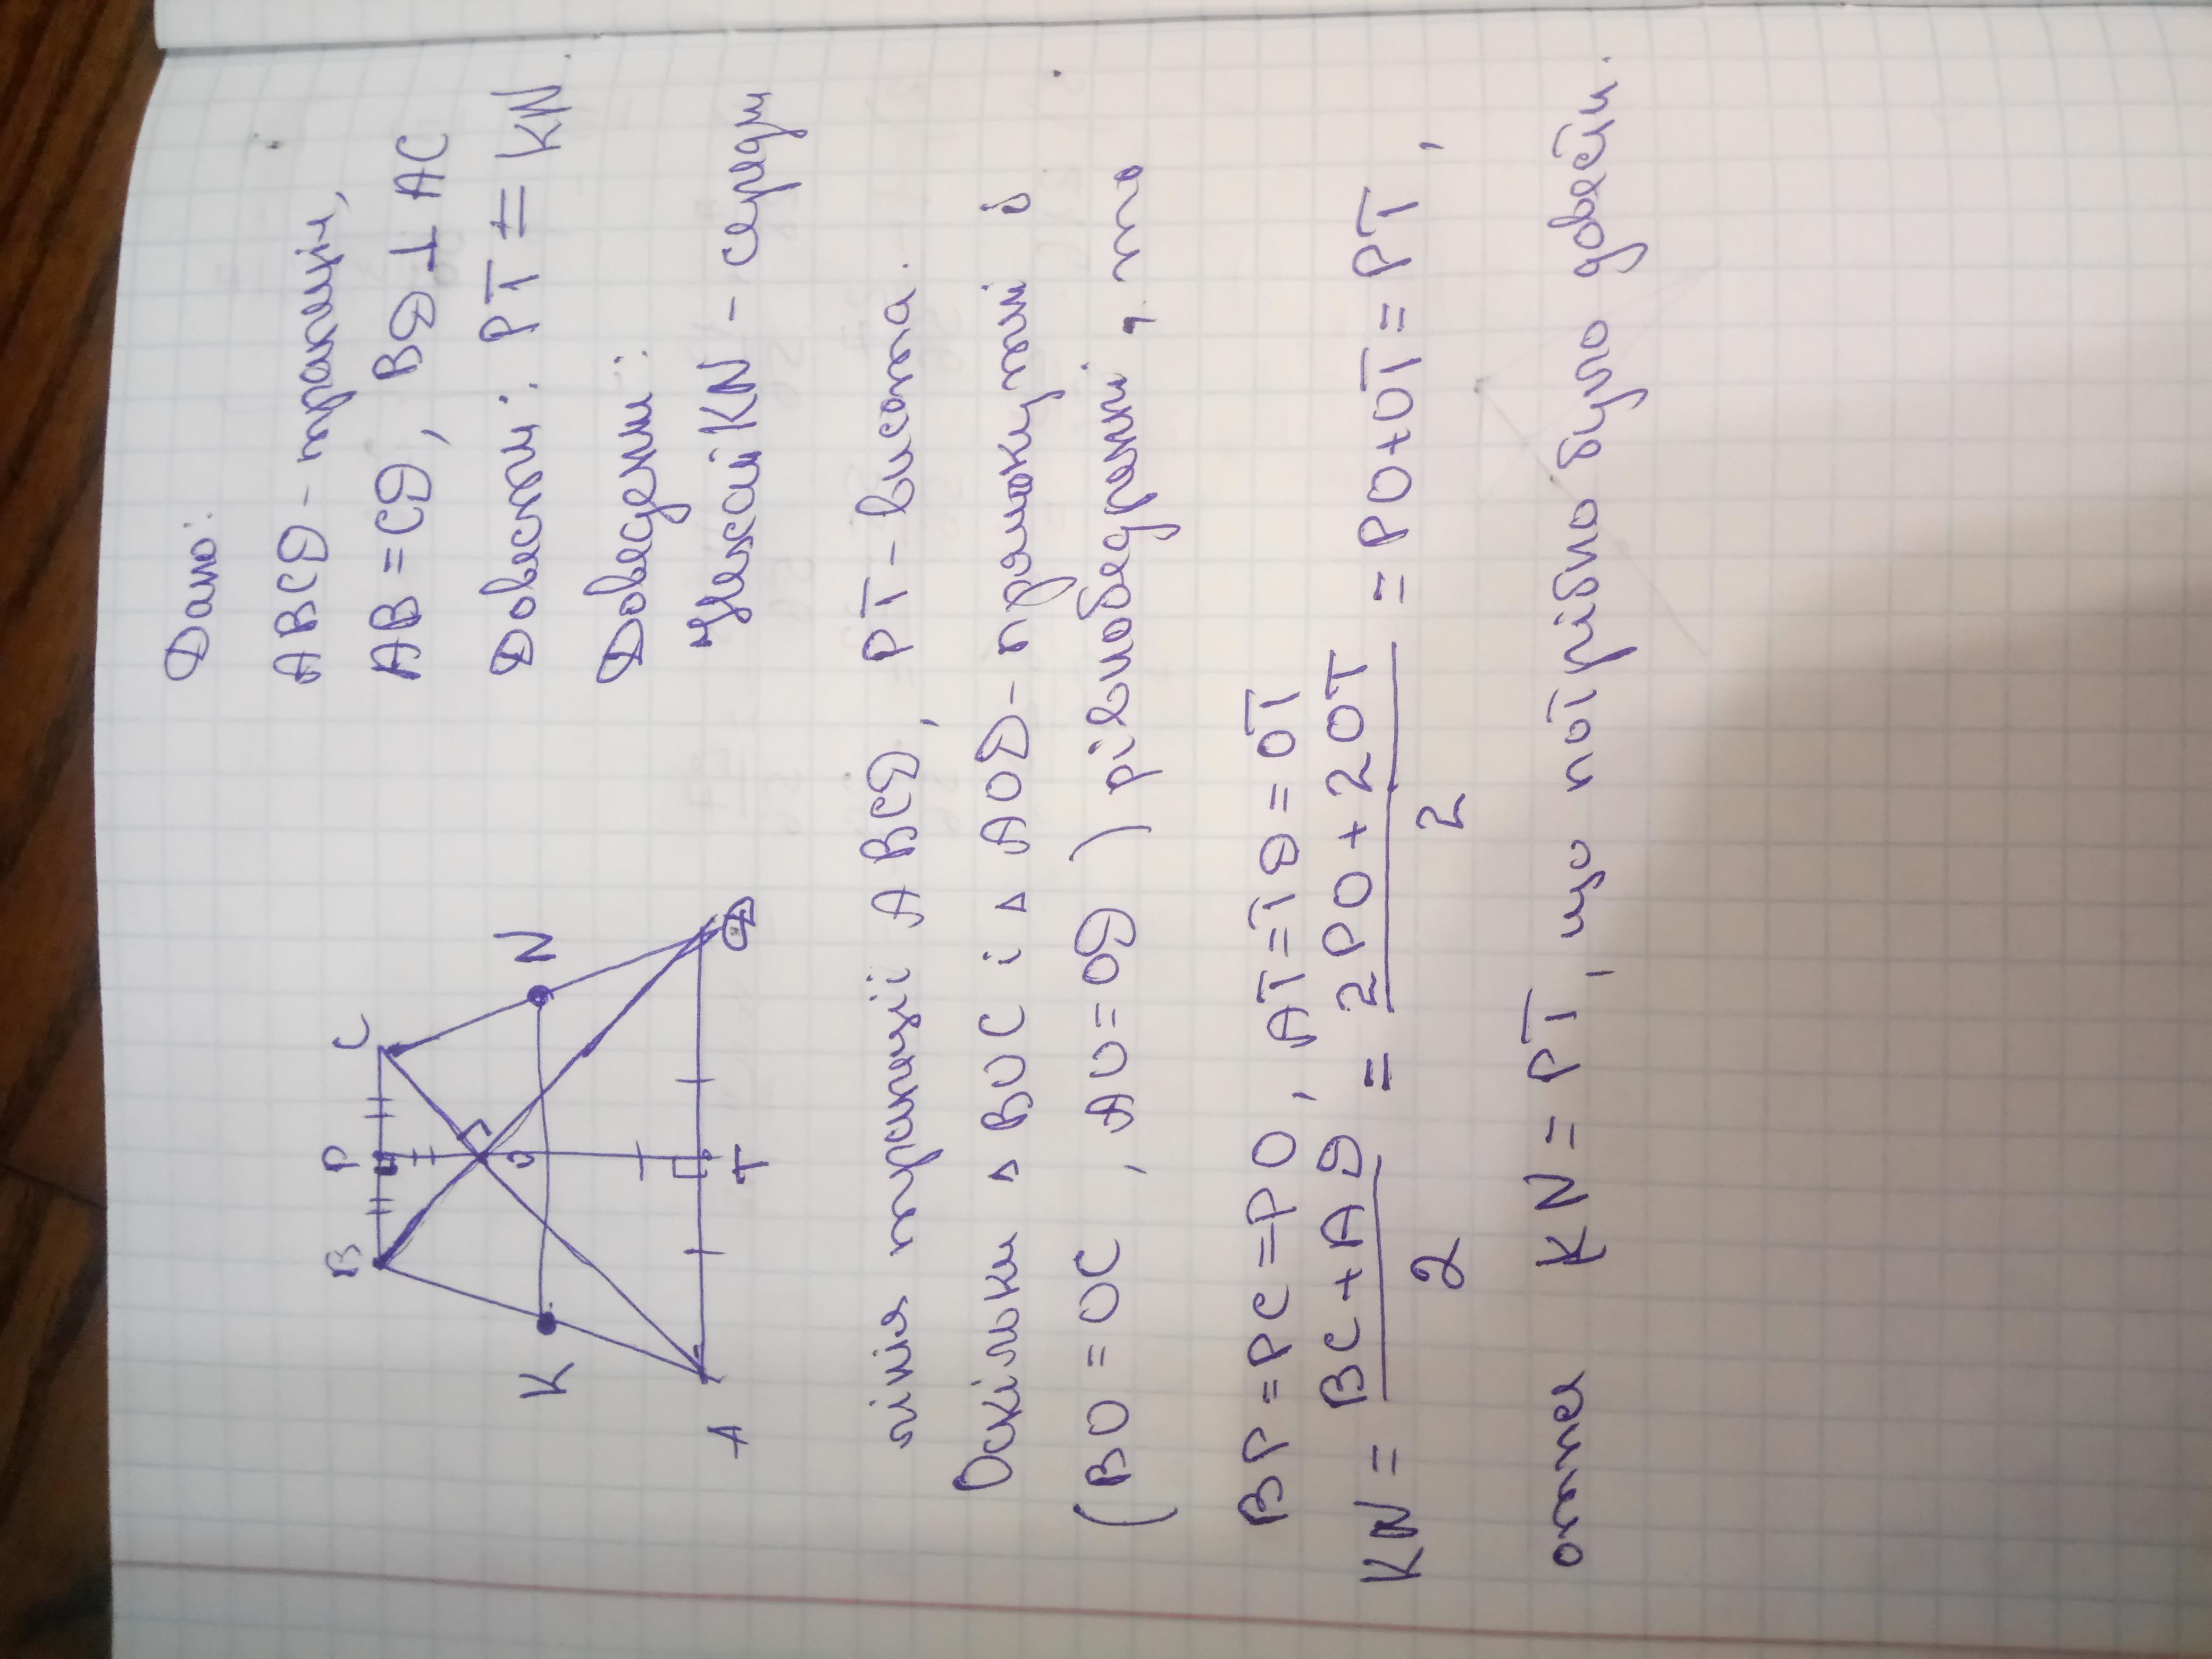 Дано:
ABCD - трапеція,
AB = CD, BD ⊥ AC
Довести: PT = KN
Доведенн:
Нехай KN - середн
B P C
K O N
A T D
лінія трапеції ABCD, PT - висота.
Оскільки △ BOC і △ AOD - прямокутні і
(BO = OC, AO = OD) рівнобедренні, то
BP = PC = PO, AT = TD = OT
KN = (BC + AD)/2 = (2PO + 2OT)/2 = PO + OT = PT,
отже KN = PT, що потрібно було довести.